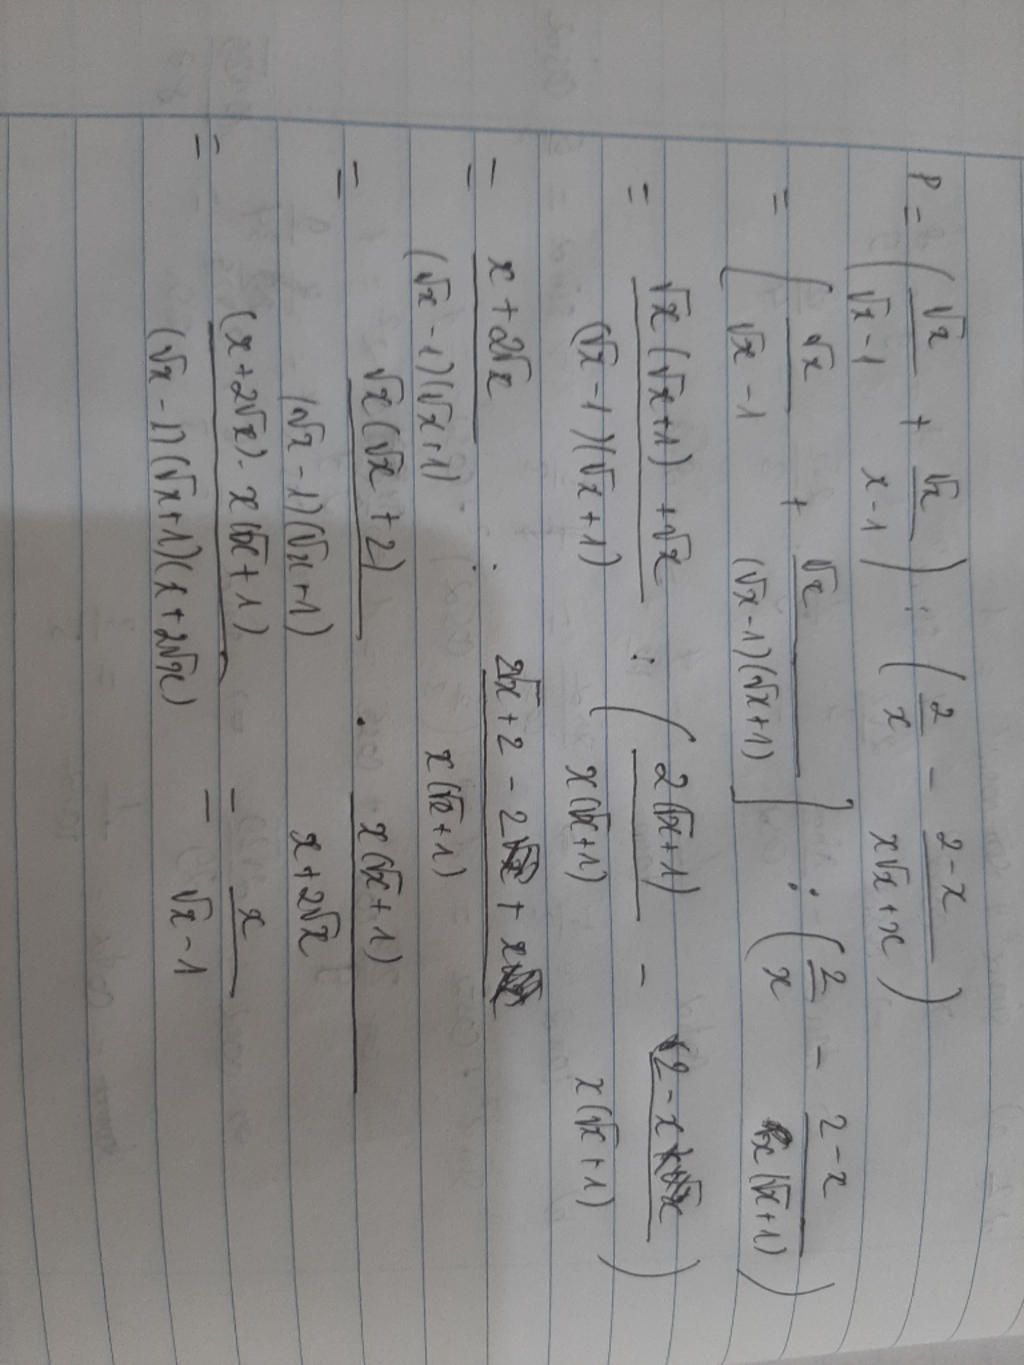 P = ( √x / (√x - 1) + √x / (x - 1) ) : ( 2 / x - (2 - x) / (x√x + x) )
= ( √x / (√x - 1) + √x / ((√x - 1)(√x + 1)) ] : ( 2 / x - (2 - x) / (x(√x + 1)) )
= (√x(√x + 1) + √x) / ((√x - 1)(√x + 1)) : ( 2(√x + 1) / (x(√x + 1)) - (2 - x) / (x(√x + 1)) )
= (x + 2√x) / ((√x - 1)(√x + 1)) : (2√x + 2 - 2 + x) / (x(√x + 1))
= √x(√x + 2) / ((√x - 1)(√x + 1)) . x(√x + 1) / (x + 2√x)
= (x + 2√x) . x(√x + 1) / ((√x - 1)(√x + 1)(x + 2√x)) = x / (√x - 1)